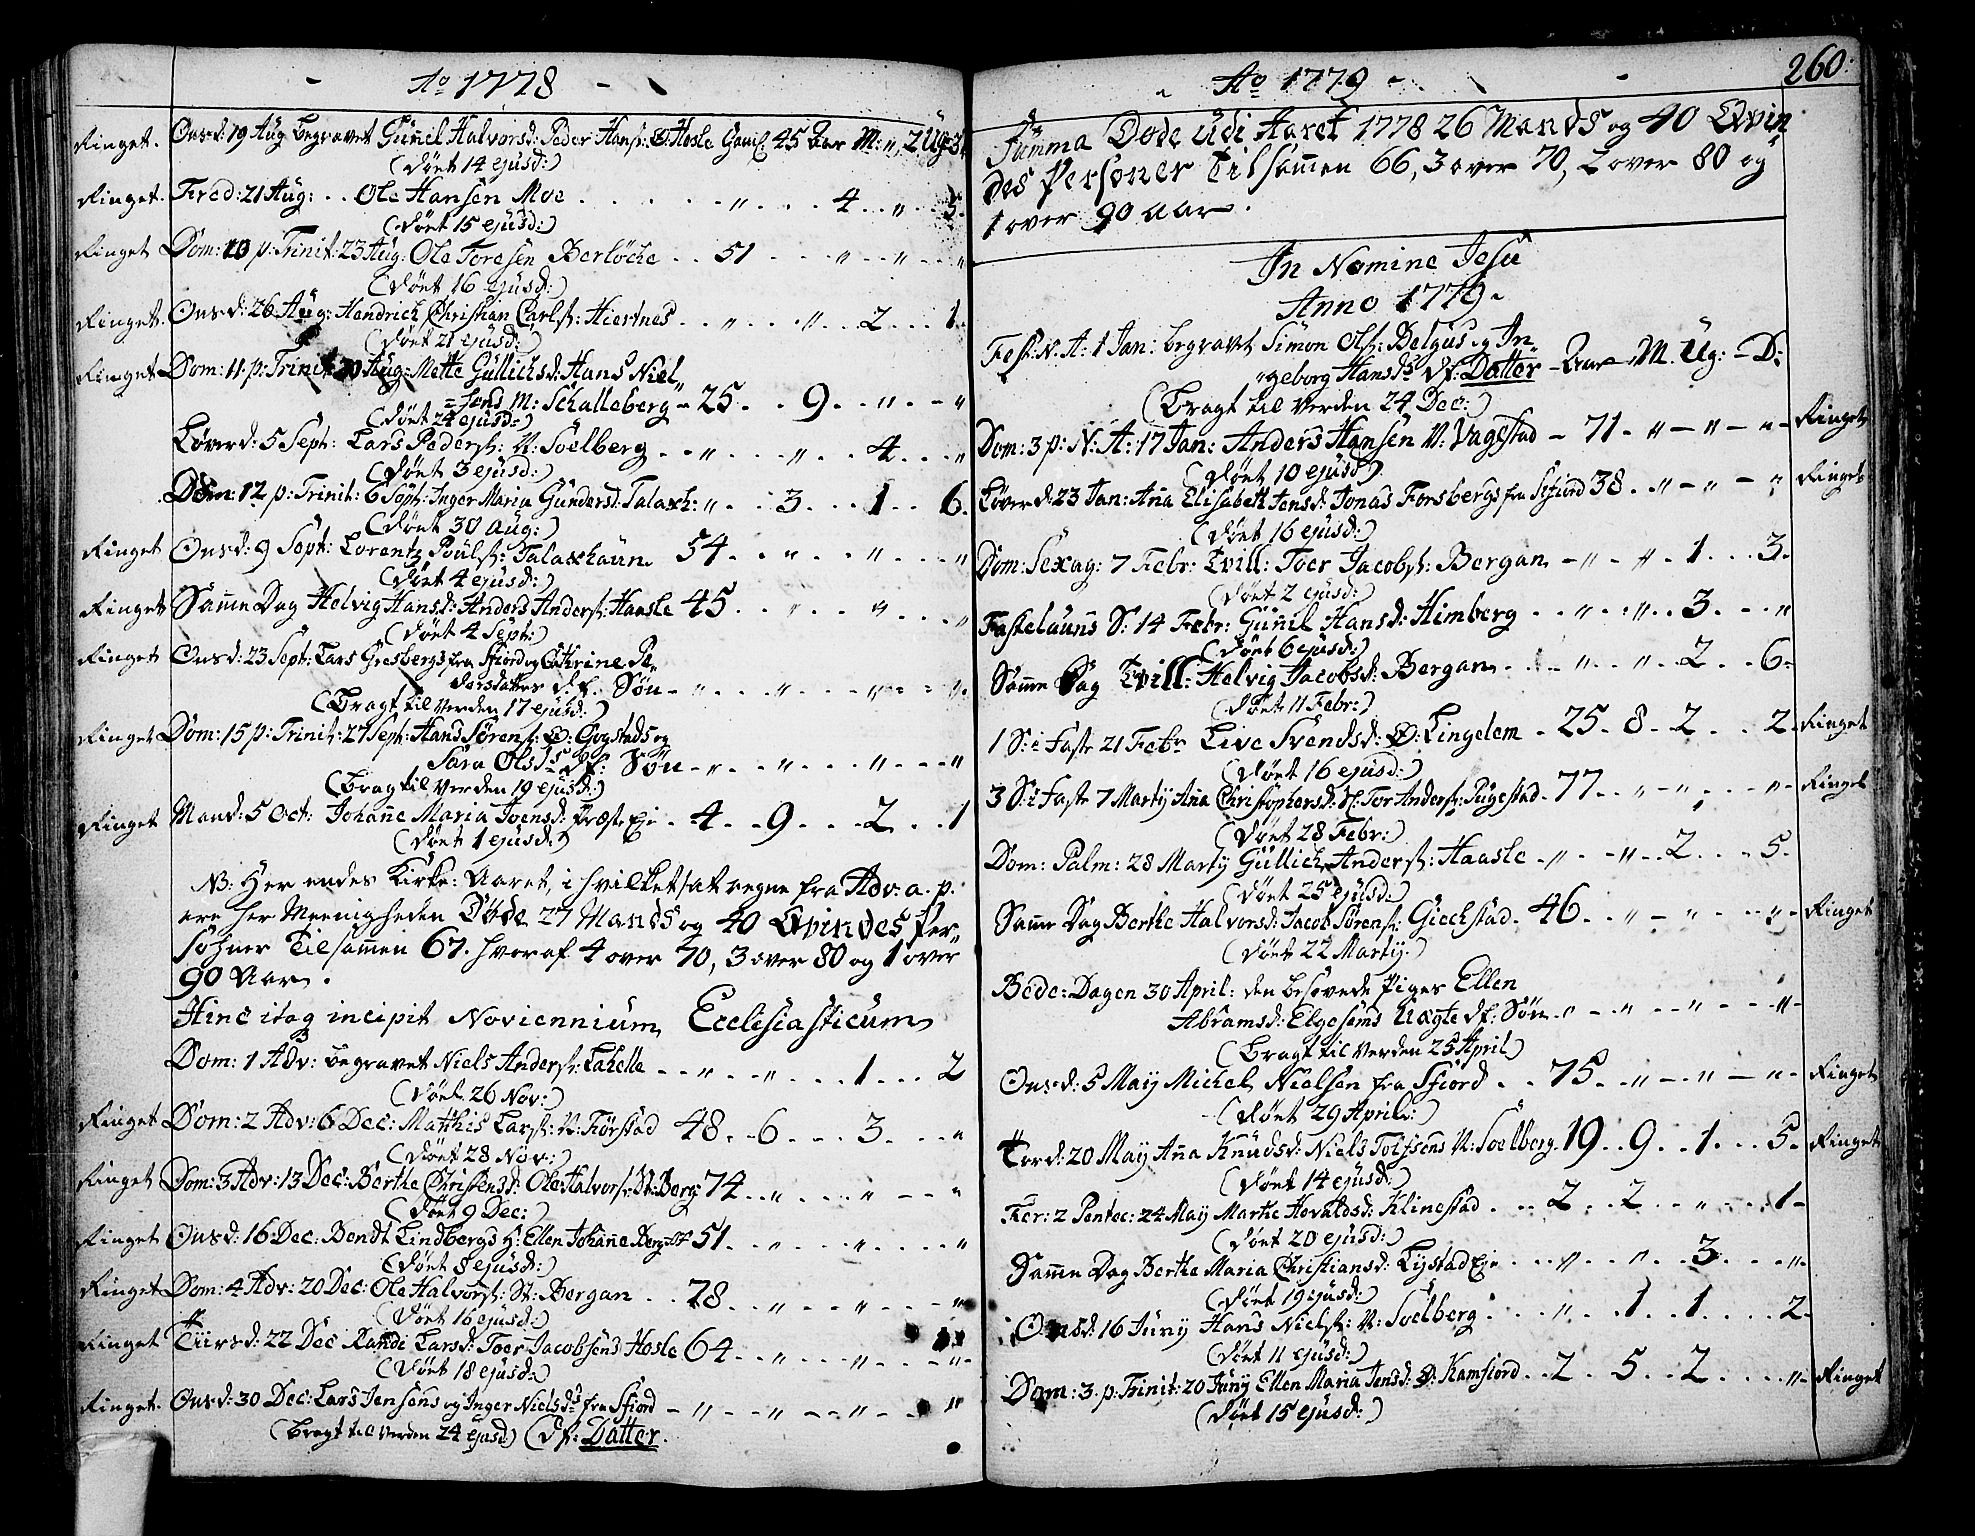 Ao 1778
Ringet. Onsd: 19 Aug begravet Gunnel Halvorsd: Peder Hans: Hosle 45 Aar M: „ 2 Ug: 3
(døet 14 ejusd:)
Ringet. Fred: 21 Aug: Ole Hansen Moe „ 4 „ 5
(døet 15 ejusd:)
Ringet Dom: 10 p: Trinit: 23 Aug: Ole Toresen Berløche 51 „ „ „
(døet 16 ejusd:)
Ringet. Onsd: 26 Aug: Hendrich Christian Carls: Hiertnes „ „ 2 1
(døet 21 ejusd:)
Ringet Dom: 11 p: Trinit: 30 Aug: Mette Gullichsd: Hans Niel„
=sens M: Schalleberg 25 9 „ „
(døet 24 ejusd:)
Løverd: 5 Sept: Lars Peders: N: Soelberg „ „ 4 „
(døet 3 ejusd:)
Dom: 12 p: Trinit: 6 Sept: Inger Maria Gundersd: Talaxh: „ 3 1 6
(døet 30 Aug:)
Ringet Onsd: 9 Sept: Lorentz Pouls: Talaxhaun 54 „ „ „
(døet 4 ejusd:)
Ringet Samme Dag Helvig Hansd: Anders Anders: Haasle 45 „ „ „
(døet 4 Sept:)
Ringet Onsd: 23 Sept: Lars Gresbergs fra Sfiord og Cathrine Pe„
dersdatter d.f. Søn „ „ „ „
(Bragt til Verden 17 ejusd:)
Ringet Dom: 15 p: Trinit: 27 Sept: Hans Sørens: Ø: Gogstads og
Sara Olsds df: Søn „ „ „ „
(Bragt til Verden 19 ejusd:)
Ringet Mand: 5 Oct: Johanne Maria Joensd: Præste Eie 4 9 2 1
(døet 1 ejusd:)
NB: Her endes Kirke: Aaret, i hvilket at regne fra Adv: a. p.
ere her Meenigheden Døde 27 Mands og 40 Qvindes Per„
sohner Tilsammen 67. hvoraf 4 over 70, 3 over 80 og 1 over
90 Aar.
Hinc itaq incipit Noviennium Ecclesiasticum
Dom: 1 Adv: begravet Niels Anders: Lahelle „ „ 1 2
(døet 26 Nov:)
Ringet Dom: 2 Adv: 6 Dec: Matthis Lars: N: Førstad 48 6 3 „
(døet 28 Nov:)
Ringet Dom: 3 Adv: 13 Dec: Berthe Christensd: Ole Halvors: St: Berg 74 „ „ „
(døet 9 Dec:)
Ringet Onsd: 16 Dec: Bendt Lindbergs H: Ellen Johanne 51 „ „ „
(døet 8 ejusd:)
Ringet Dom: 4 Adv: 20 Dec: Ole Halvors: St: Bergan 78 „ „ „
(døet 16 ejusd:)
Ringet Tiirsd: 22 Dec Randi Larsd: Toer Jacobsens Hosle 64 „ „ „
(døet 18 ejusd:)
Ringet. Onsd: 30 Dec: Lars Jensens og Inger Nielsds fra Sfiord „ „ „ „
(Bragt til Verden 24 ejusd) (df: Datter.
Ao 1779
260:
Summa Døde udi Aaret 1778 26 Mands og 40 Qvin„
des Personer Tilsammen 66, 3 over 70, 2 over 80 og
1 over 90 Aar.
In Nomine Jesu
Anno 1779.
Fest: N. A: 1 Jan: begravet Simon Ols: Belgus og In„
„geborg Hansds df: Datter Aar M. Ug: D:
(Bragt til Verden 24 Dec:)
Dom: 3 p: N: A: 17 Jan: Anders Hansen N: Vagestad 71 „ „ „ Ringet
(døet 10 ejusd)
Løverd: 23 Jan: Ana Elisabeth Jensd: Jonas Forsbergs fra Sfiord 38 „ „ „ Ringet
(døet 16 ejusd:)
Dom: Sexag: 7 Febr: Tvill: Toer Jacobs: Bergan „ „ 1 3
(døet 2 ejusd:)
Fastelauns S: 14 Febr: Gunil Hansd: Himberg „ „ 3 „
(døet 6 ejusd:)
Samme Dag Tvill: Helvig Jacobsd: Bergan „ „ 2 6
(døet 11 Febr:)
1 S: i Faste 21 Febr Live Svendsd: Ø: Lingelem 25 8 2 2 Ringet
(døet 16 ejusd:)
3 S: i Faste 7 Martij Ana Christophersd: Tor Anders: Pugestad 77 „ „ „ Ringet
(døet 28 Febr:)
Dom: Palm: 28 Martij Gullich Anders: Haasle „ „ 2 5
(døet 25 ejusd:)
Samme Dag Berthe Halvorsd: Jacob Sörens: Giechstad 46 „ „ „ Ringet
(døet 22 Martij)
Bede: Dagen 30 April: den besovede Piges Ellen
Abramsd: Elgesems Uægte df: Søn „ „ „ „
(Bragt til Verden 25 April)
Onsd: 5 Maij Michel Nielsen fra Sfiord 75 „ „ „ Ringet
(døet 29 April:)
Tord: 20 Maij Ana Knudsd: Niels Tolfsens N: Soelberg 19 9 1 5 Ringet
(døet 14 ejusd:)
Fer: 2 Pentec: 24 Maij Marthe Hovaldsd: Klinestad 2 2 „ 1
(døet 20 ejusd:)
Samme Dag Berthe Maria Christiansd: Lystad Eje „ „ 3 „
(døet 19 ejusd:)
Onsd: 16 Junij Hans Niels: N: Soelberg „ 1 1 2
(døet 11 ejusd:)
Dom: 3. p: Trinit: 20 Junij Ellen Maria Jensd: Ø: Kamfiord 2 5 2 „ Ringet
(døet 15 ejusd:)